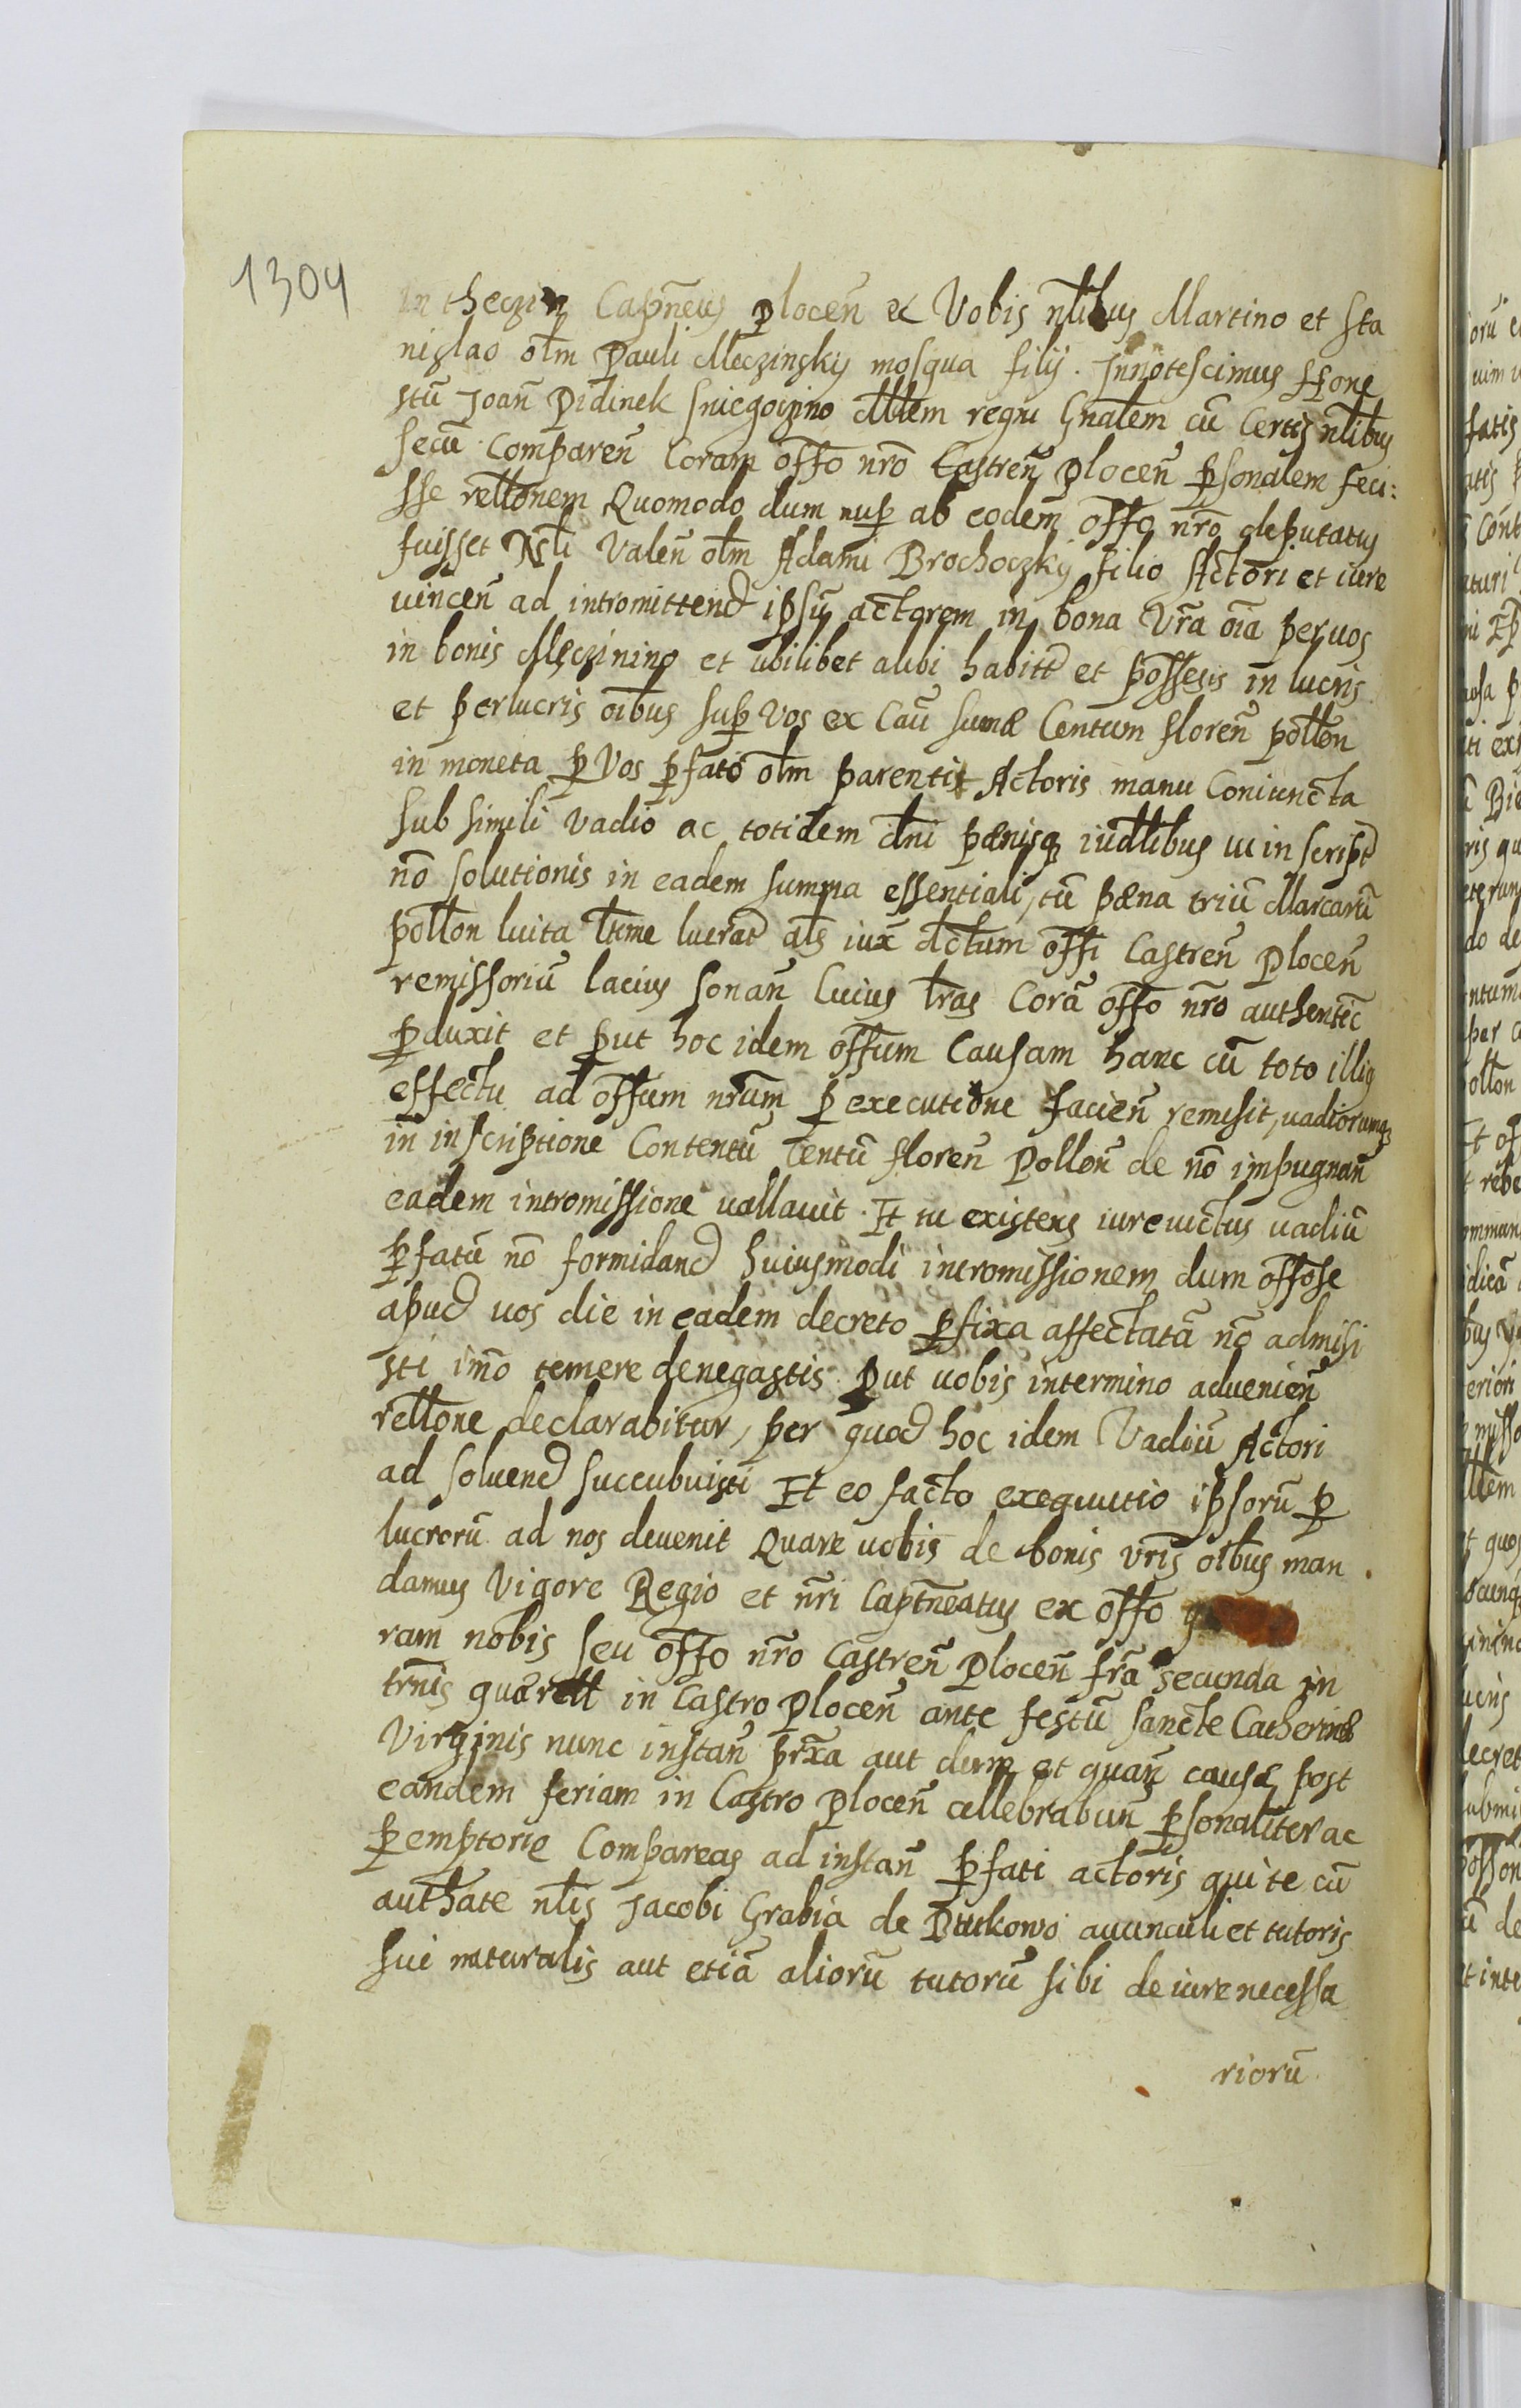 1304
in theczin Capñeus plocen̄ & Vobis nl̃ibus Martino et Sta
nislao ol̃m Pauli Meczinskij mosqua filij. Innotescimus Hone
stū Joan̄ Pidinek Sniegoczino Mll̃em regni Gñalem cū Certis nl̃ibus
secū Comparen̄ Coram off̃o nr̃o Castren̄ Plocen̄ p̱sonalem feci:
sse rell̃onem Quomodo dum nup̱ ab eodem off̃o nr̃o deputatus
fuisset Nl̃i Valen̄ ol̃m Adami Brochoczkij filio Actori et iure
vincen̄ ad intromittend ipsū actorem in bona Vr̃a oīa per vos
in bonis Meczinino et ubilibet alibi habitt et possesis in lucris
et perlucris oībus sup̱ Vos ex Caū sumæ Centum floren̄ poll̃on
in moneta p̱ Vos p̱fato ol̃m parentis Actoris manu Coniuncta
sub simili vadio ac totidem dñi pænisq iudl̃ibus ui inscript
nō solutionis in eadem summa essentiali, tū pæna triū Marcarū
poll̃on luita l̃time luerat al̃s iux dctum off̃i Castren̄ Plocen̄
remissoriū lacius sonan̄ Cuius l̃ras Corā off̃o nr̃o authentic
p̱duxit et p̱ut hoc idem off̃um Causam hanc cū toto illig
effectu ad off̃um nr̃um p̱ executione facien̄ remisit, vadiorumq
in inscriptione Contentū Centū floren̄ Pollon̄ de nō impugnan̄
eadem intromissione vallavit. Et tu existens iurevictus vadiū
p̱fatū nō formidand huiusmodi intromissionem dum off̃ose
apud vos die in eadem decreto p̱fixa affectatā nō admisi
sti imō temere denegastis Put vobis intermino advenien̄
rell̃one declarabitur, per quod hoc idem Vadiū Actori
ad solvend succubuisti Et eo facto exequutio ipsorū p̱
lucrorū ad nos devenit Quare vobis de bonis vr̃is oībus man
damus Vigore Regio et nr̃i Captñeatus ex off̃o
ram nobis seu off̃o nr̃o Castren̄ Plocen̄ fr̃a secunda in
tr̃nis quærell in Castro Plocen̄ ante festū Sancte Catherinæ
Virginis nunc instan̄ pr̃xa aut dum et quan̄ causæ post
eandem feriam in Castro Plocen̄ cellebrabun̄ p̱sonaliter ac
p̱emptorie Compareas ad instan̄ p̱fati actoris qui te cū
authāte nl̃is Jacobi Grabia de Dutkowo avunculi et tutoris
sui naturalis aut etiā aliorū tutorū sibi de iure necessa
riorū